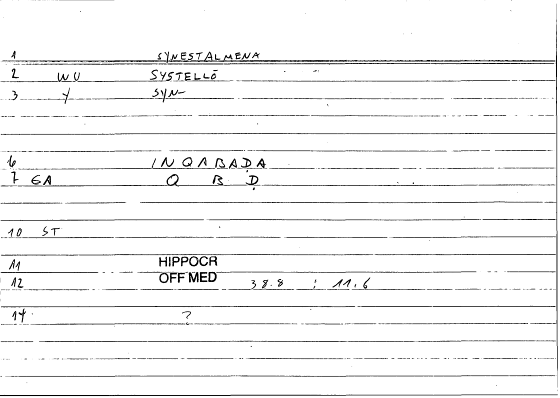 1 SYNESTALMENA
2 WU SYSTELLŌ
3 Y SYN-
6 INQABAḌA
7 GA Q B Ḍ
10 ST
11 HIPPOCR
12 OFF MED 38.8 : 11.6
14 ?